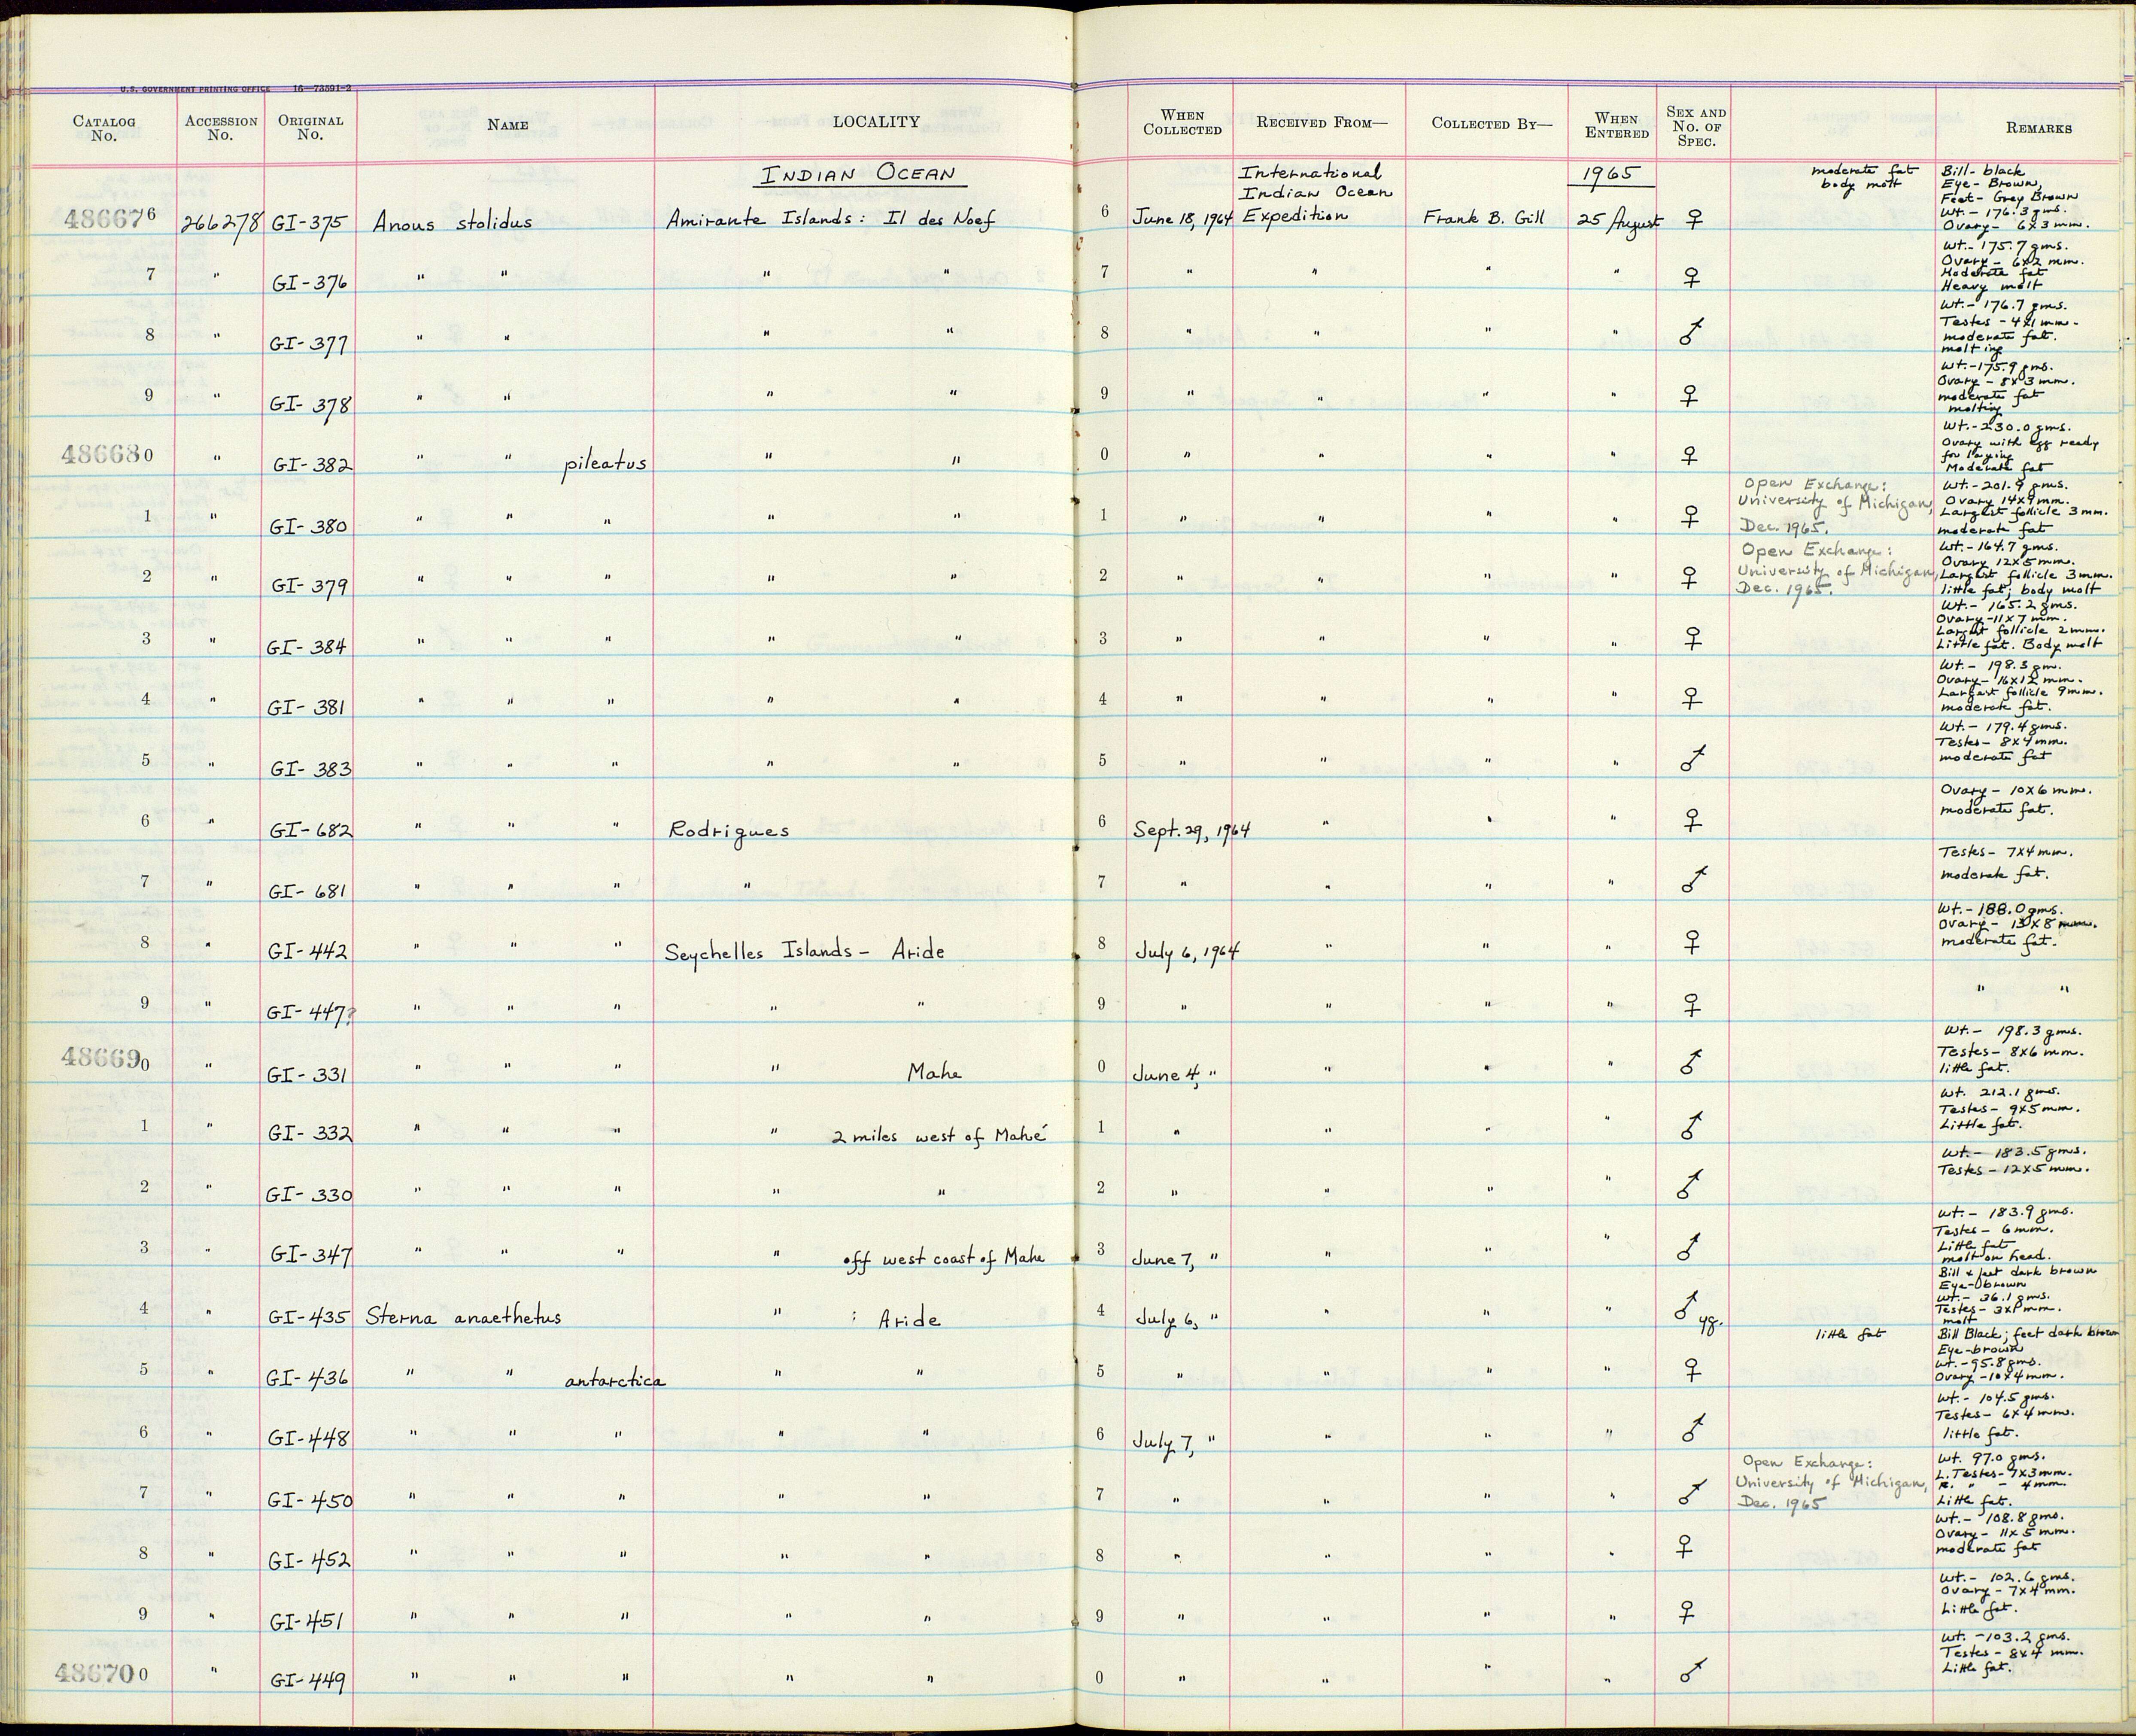 U.S. GOVERNMENT PRINTING OFFICE 16—73591-2
CATALOG No. ACCESSION No. ORIGINAL No. NAME LOCALITY WHEN COLLECTED RECEIVED FROM— COLLECTED BY— WHEN ENTERED SEX AND No. OF SPEC. REMARKS
INDIAN OCEAN International Indian Ocean 1965 moderate fat body molt Bill- black Eye- Brown, Feet- Gray Brown
486676 266278 GI-375 Anous stolidus Amirante Islands: Il des Noef 6 June 18, 1964 Expedition Frank B. Gill 25 August ♀ Wt.- 176.3 gms. Ovary- 6x3 mm.
7 " GI-376 " " " " 7 " " " " ♀ Wt.- 175.7 gms. Ovary- 6x2 mm. Moderate fat Heavy molt
8 " GI-377 " " " " 8 " " " " ♂ Wt.- 176.7 gms. Testes - 4x1 mm. moderate fat. molting
9 " GI-378 " " " " 9 " " " " ♀ Wt.-175.9 gms. Ovary - 8x3 mm. moderate fat molting
486680 " GI-382 " " pileatus " " 0 " " " " ♀ Wt.-230.0 gms. Ovary with egg ready for laying Moderate fat
1 " GI-380 " " " " " 1 " " " " ♀ Open Exchange: University of Michigan, Dec. 1965. Wt.-201.9 gms. Ovary 14x9mm. Largest follicle 3mm. moderate fat
2 " GI-379 " " " " " 2 " " " " ♀ Open Exchange: University of Michigan, Dec. 1965. Wt.-164.7 gms. Ovary 12x5mm. Largest follicle 3mm. little fat; body molt
3 " GI-384 " " " " " 3 " " " " ♀ Wt.- 165.2 gms. Ovary-11x7mm. Largest follicle 2mm. Little fat. Body molt
4 " GI-381 " " " " " 4 " " " " ♀ Wt.- 198.3 gm. Ovary- 16x12 mm. Largest follicle 9mm. moderate fat.
5 " GI-383 " " " " " 5 " " " " ♂ Wt.- 179.4 gms. Testes- 8x4mm. moderate fat
6 " GI-682 " " " Rodrigues 6 Sept. 29, 1964 " " " ♀ Ovary- 10x6 mm. moderate fat.
7 " GI-681 " " " " 7 " " " " ♂ Testes- 7x4mm. moderate fat.
8 " GI-442 " " " Seychelles Islands - Aride 8 July 6, 1964 " " " ♀ Wt.-188.0gms. Ovary- 13x8 mm. moderate fat.
9 " GI-447? " " " " " 9 " " " " ♀ " "
486690 " GI-331 " " " " Mahe 0 June 4, " " " " ♂ Wt.- 198.3 gms. Testes- 8x6 mm. little fat.
1 " GI-332 " " " " 2 miles west of Mahé 1 " " " " ♂ Wt. 212.1 gms. Testes- 9x5mm. Little fat.
2 " GI-330 " " " " " 2 " " " " ♂ Wt.- 183.5 gms. Testes-12x5mm.
3 " GI-347 " " " " off west coast of Mahe 3 June 7, " " " " ♂ Wt.- 183.9 gms. Testes- 6mm. Little fat molt on head.
4 " GI-435 Sterna anaethetus " : Aride 4 July 6, " " " " ♂ yg. Bill & feet dark brown Eye-brown Wt.- 36.1 gms. Testes- 3x1mm. molt
5 " GI-436 " " antarctica " " 5 " " " " ♀ little fat Bill Black; feet dark brown Eye-brown Wt.-95.8gms. Ovary-10x4mm.
6 " GI-448 " " " " " 6 July 7, " " " " ♂ Wt.- 104.5 gms. Testes- 6x4mm. little fat.
7 " GI-450 " " " " " 7 " " " " ♂ Open Exchange: University of Michigan, Dec. 1965 Wt. 97.0 gms. L. Testes- 7x3mm. R. " - 4mm. Little fat.
8 " GI-452 " " " " " 8 " " " " ♀ Wt.- 108.8 gms. Ovary- 11x5mm. moderate fat
9 " GI-451 " " " " " 9 " " " " ♀ Wt.- 102.6 gms. Ovary-7x4mm. Little fat.
486700 " GI-449 " " " " " 0 " " " " ♂ Wt.-103.2 gms. Testes- 8x4 mm. Little fat.